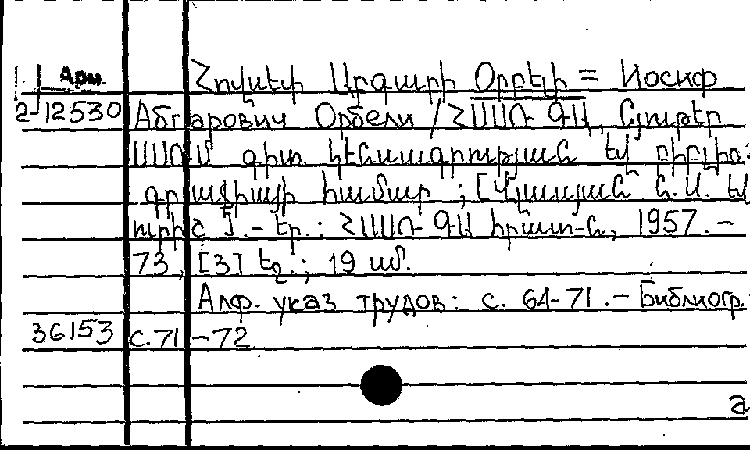 Арм. Հովսեփ Աբգարի Օրբելի = Иосиф
2-12530 Абгарович Орбели / ՀՍՍՌ ԳԱ, Նյութեր
ՍՍՌՄ գիտ կենսագրության եվ բիբլիո-
գրաֆիայի համար ; [
ուրիշ]. - Եր.: ՀՍՍՌ ԳԱ հրատ-ն, 1957. -
73, [3] էջ.; 19 սմ.
Алф. указ трудов: с. 64-71. - Библиогр.:
36153 с. 71-72
а